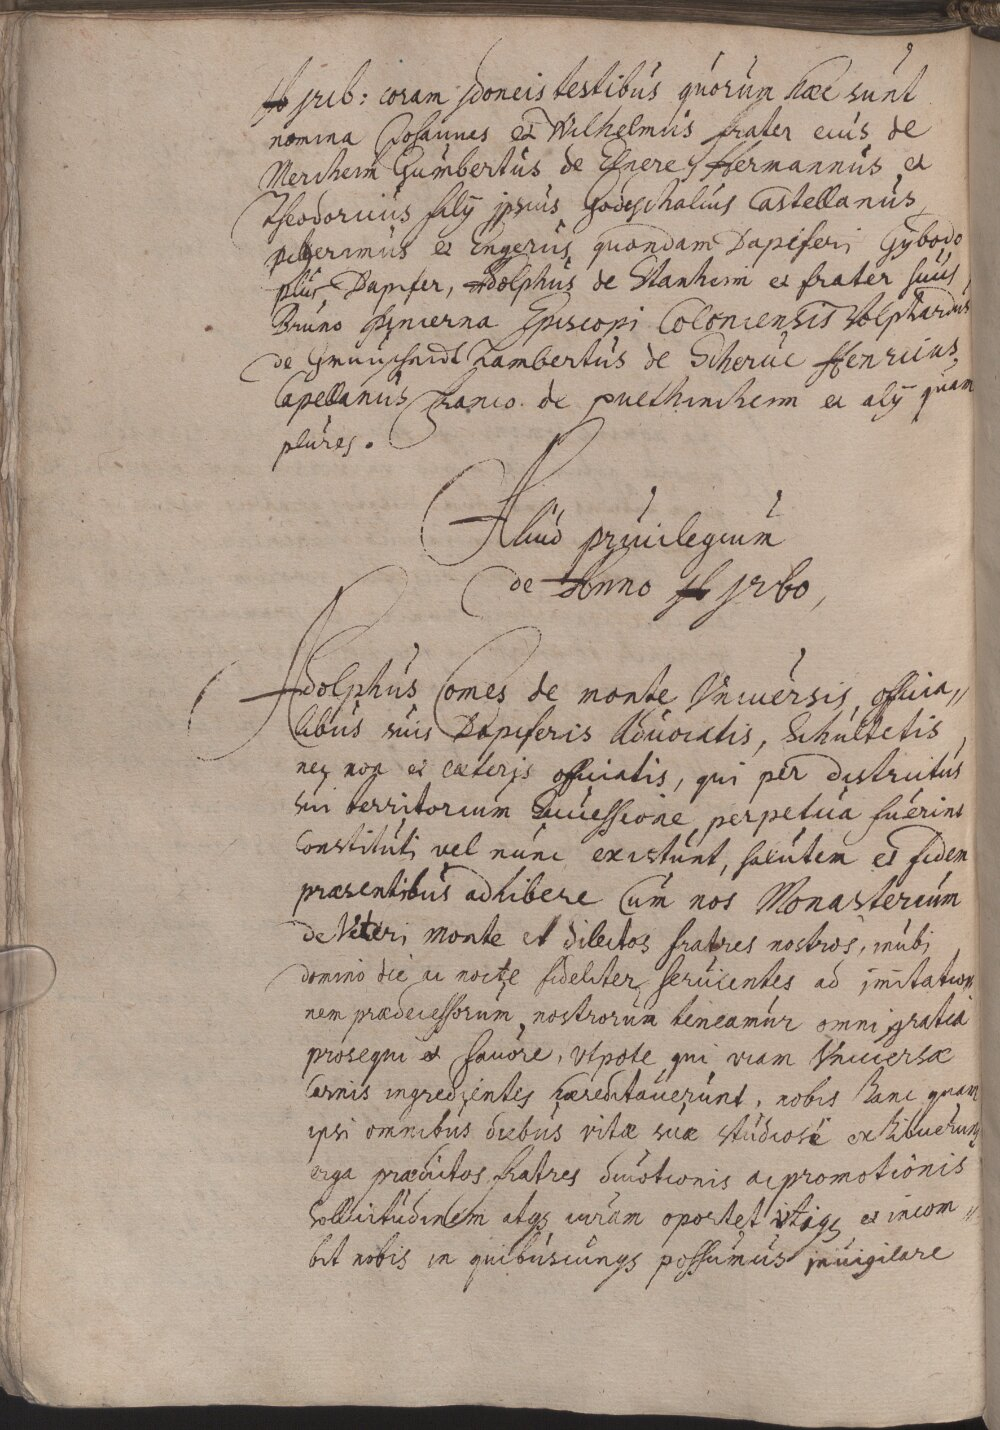 coram idoneis testibus quorum haec sunt
nomina Johannes et Wilhelmus frater eius de
Merheim Gumbertus de Efnere, Hermannus et
Theodoricus filÿ ipsius Godeschalcus Castellanus,
et Engerus quondam Dapiferi Gÿbodo
Dapifer, Adolphus de Stanheim et frater suus,
Bruno pincerna Episcopi Coloniensis Volphardus
de Lambertus de Scherue Henricus
Capellanus, Franco de et alÿ quam
plures.
Aliud priuilegium
de Anno
Adolphus Comes de monte Vniuersis, officia„
libus suis Dapiferis Aduocatis, Schultetis,
nec non et caeteris officiatis, qui per districtus
sui territorium successione perpetua fuerint
Constituti vel nunc existunt, salutem et fidem
praesentibus adhibere Cum nos Monasterium
de Veteri monte et dilectos fratres nostros, inibi
domino die ac nocte fideliter seruientes ad imitatio„
nem praedecessorum nostrorum teneamur omni gratia
prosequi et fauore, Vtpote qui viam Vniuersae
Carnis ingredientes haereditauerunt, nobis hanc quam
ipsi omnibus diebus vitae suae studiose exhibuerunt
erga praedictos fratres deuotionis ac promotionis
sollicitudinem atqȝ curam oportet vtiqȝ et incom„
bit nobis in quibuscunqȝ possumus inuigilare